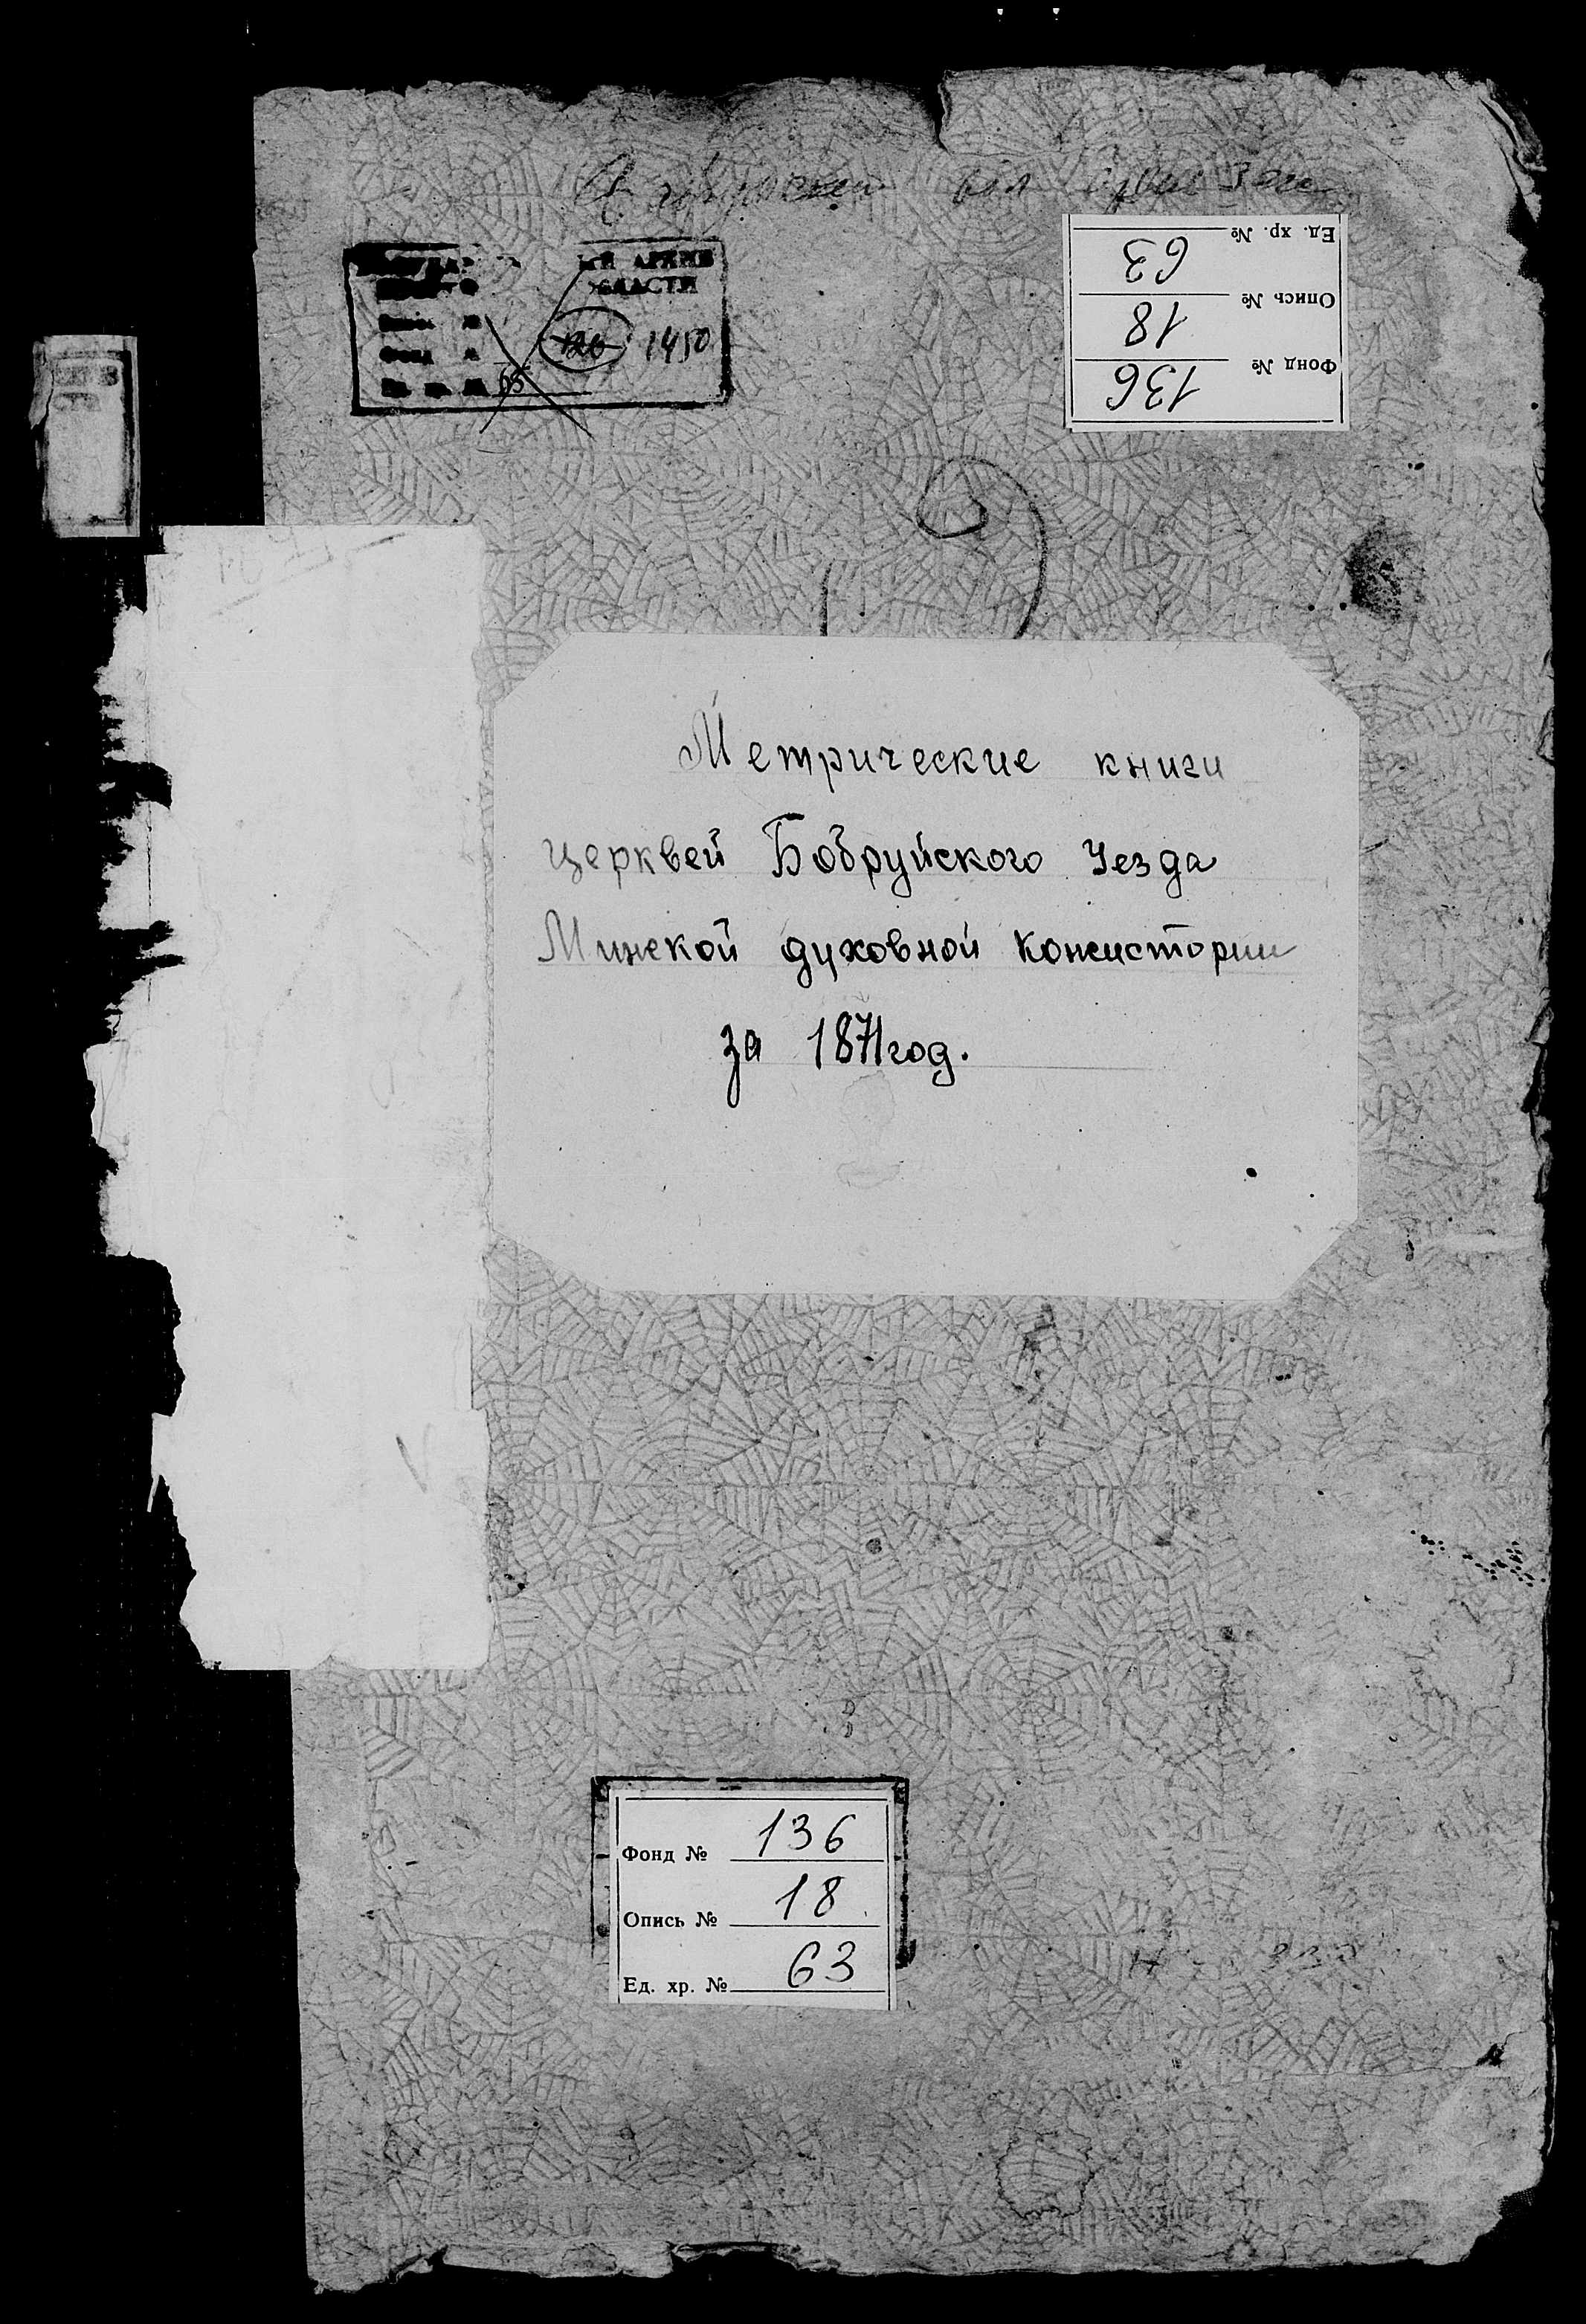 АРХИВ
ОБЛАСТИ
1450
65
Фонд № 136
Опись № 18
Ед. хр. № 63
Метрические книги
церквей Бобруйского Уезда
Минской духовной Консистории
за 1871 год.
Фонд № 136
Опись № 18
Ед. хр. № 63